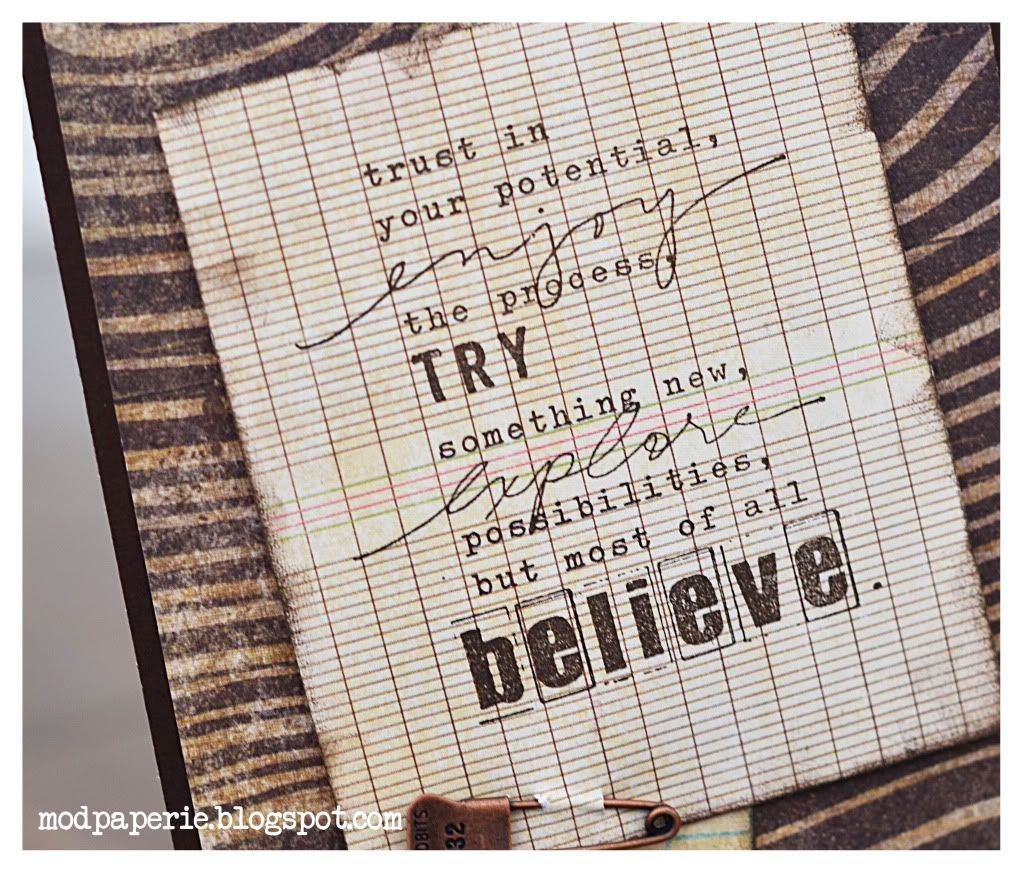 trust in
your potential,
enjoy
the process,
TRY
something new,
explore
possibilities,
but most of all
believe.
32
modpaperie.blogspot.com